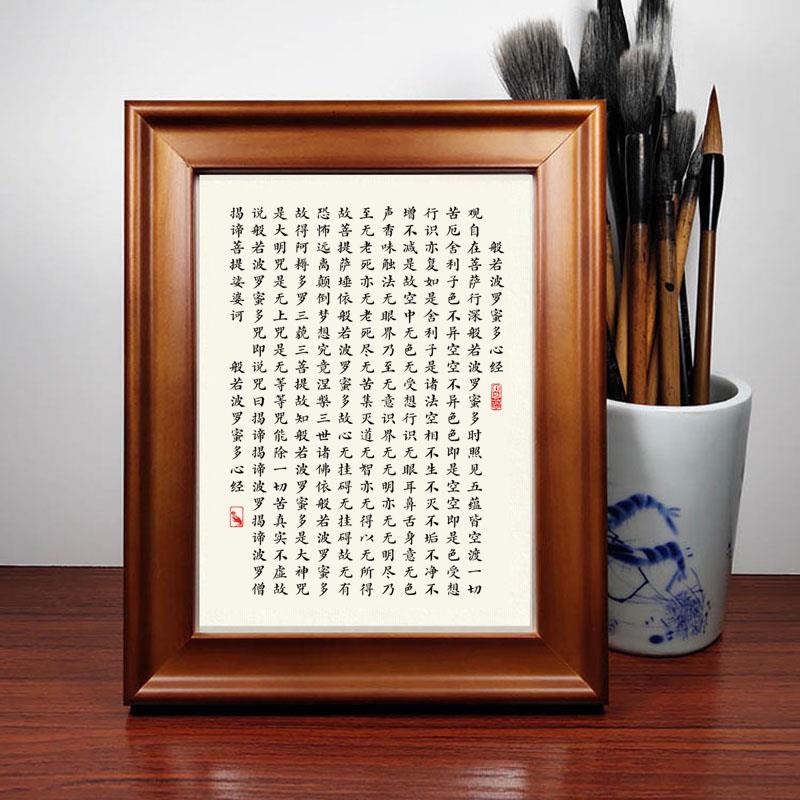 般若波罗蜜多心经
观自在菩萨行深般若波罗蜜多时照见五蕴皆空渡一切
苦厄舍利子色不异空空不异色色即是空空即是色受想
行识亦复如是舍利子是诸法空相不生不灭不垢不净不
增不减是故空中无色无受想行识无眼耳鼻舌身意无色
声香味触法无眼界乃至无意识界无无明亦无无明尽乃
至无老死亦无老死尽无苦集灭道无智亦无得以无所得
故菩提萨埵依般若波罗蜜多故心无挂碍无挂碍故无有
恐怖远离颠倒梦想究竟涅槃三世诸佛依般若波罗蜜多
故得阿耨多罗三藐三菩提故知般若波罗蜜多是大神咒
是大明咒是无上咒是无等等咒能除一切苦真实不虚故
说般若波罗蜜多咒即说咒曰揭谛揭谛波罗揭谛波罗僧
揭谛菩提娑婆诃 般若波罗蜜多心经